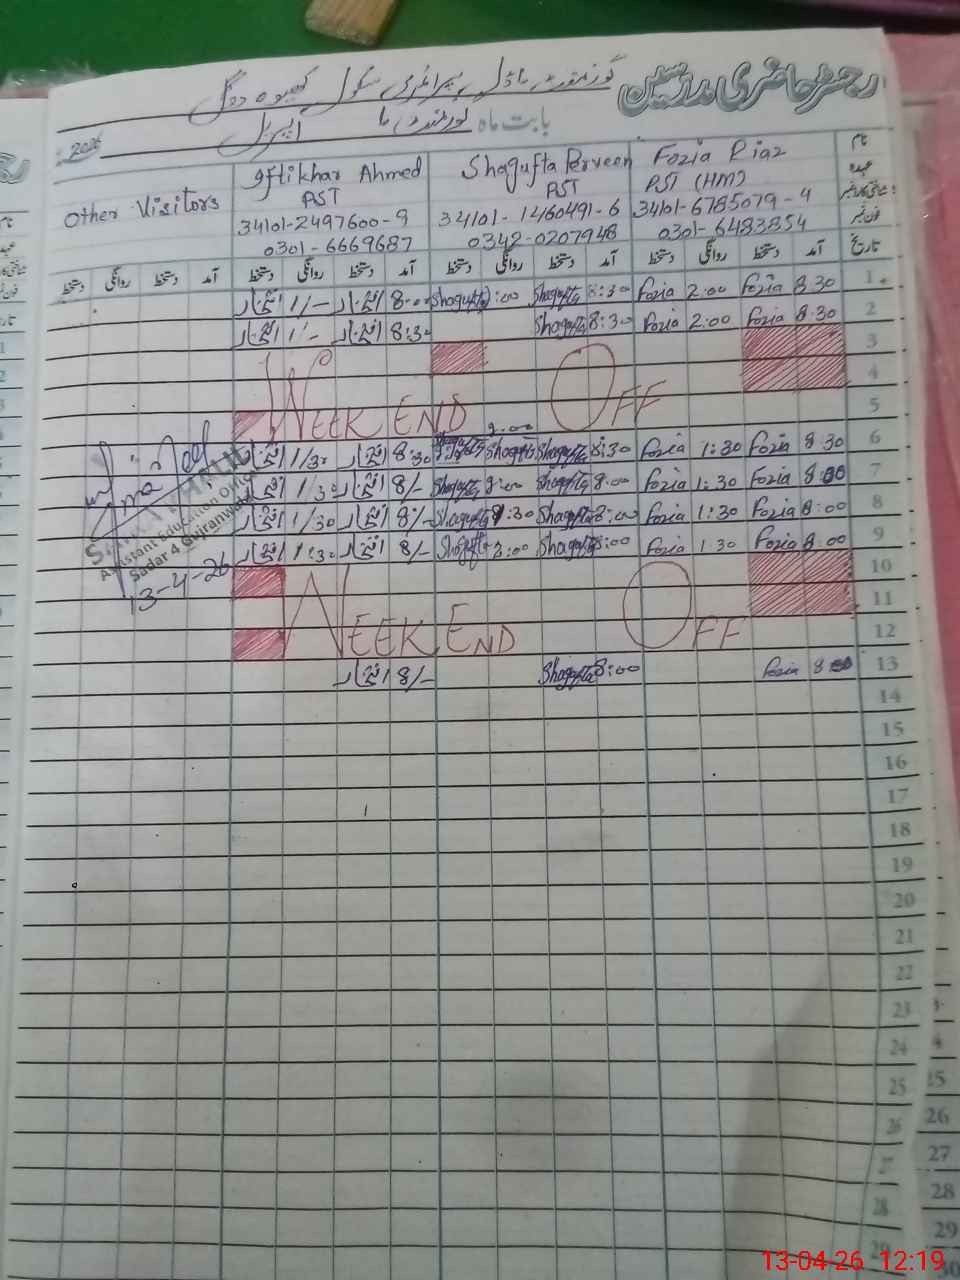 رجسٹر حاضری مدرسین
گورنمنٹ ماڈل پرائمری سکول
بابت ماہ اپریل 2026
نام Fozia Riaz Shagufta Perveen Iftikhar Ahmed Other Visitors
عہدہ PST (HM) PST PST
34101-6785079-4 34101-1460491-6 34101-2497600-9
فون نمبر 0301-6483854 0342-0207948 0301-6669687
تاریخ آمد دستخط روانگی دستخط آمد دستخط روانگی دستخط آمد دستخط روانگی دستخط آمد دستخط روانگی دستخط
1 8:30 Fozia 2:00 Fozia 8:30 Shagufta :00 Shagufta 8:00 افتخار 1/- افتخار
2 8:30 Fozia 2:00 Fozia 8:30 Shagufta 8:30 افتخار 1/- افتخار
3
4
5
WEEK END OFF
6 8:30 Fozia 1:30 Fozia 8:30 Shagufta Shagufta 8:30 افتخار 1/30 افتخار
7 8:00 Fozia 1:30 Fozia 8:00 Shagufta :00 Shagufta 8/- افتخار 1/30 افتخار
8 8:00 Fozia 1:30 Fozia 8:00 Shagufta :30 Shagufta 8/- افتخار 1/30 افتخار
9 8:00 Fozia 1:30 Fozia 8:00 Shagufta 2:00 Shagufta 8/- افتخار 1:30 افتخار
Assistant Education Officer
Sadar 4 Gujranwala
13-4-26
10
11
12
WEEK END OFF
13 8:00 Fozia 8:00 Shagufta 8/- افتخار
14
15
16
17
18
19
20
21
22
23
24
25
26
27
28
29
25
26
27
28
29
30
13-04-26 12:19